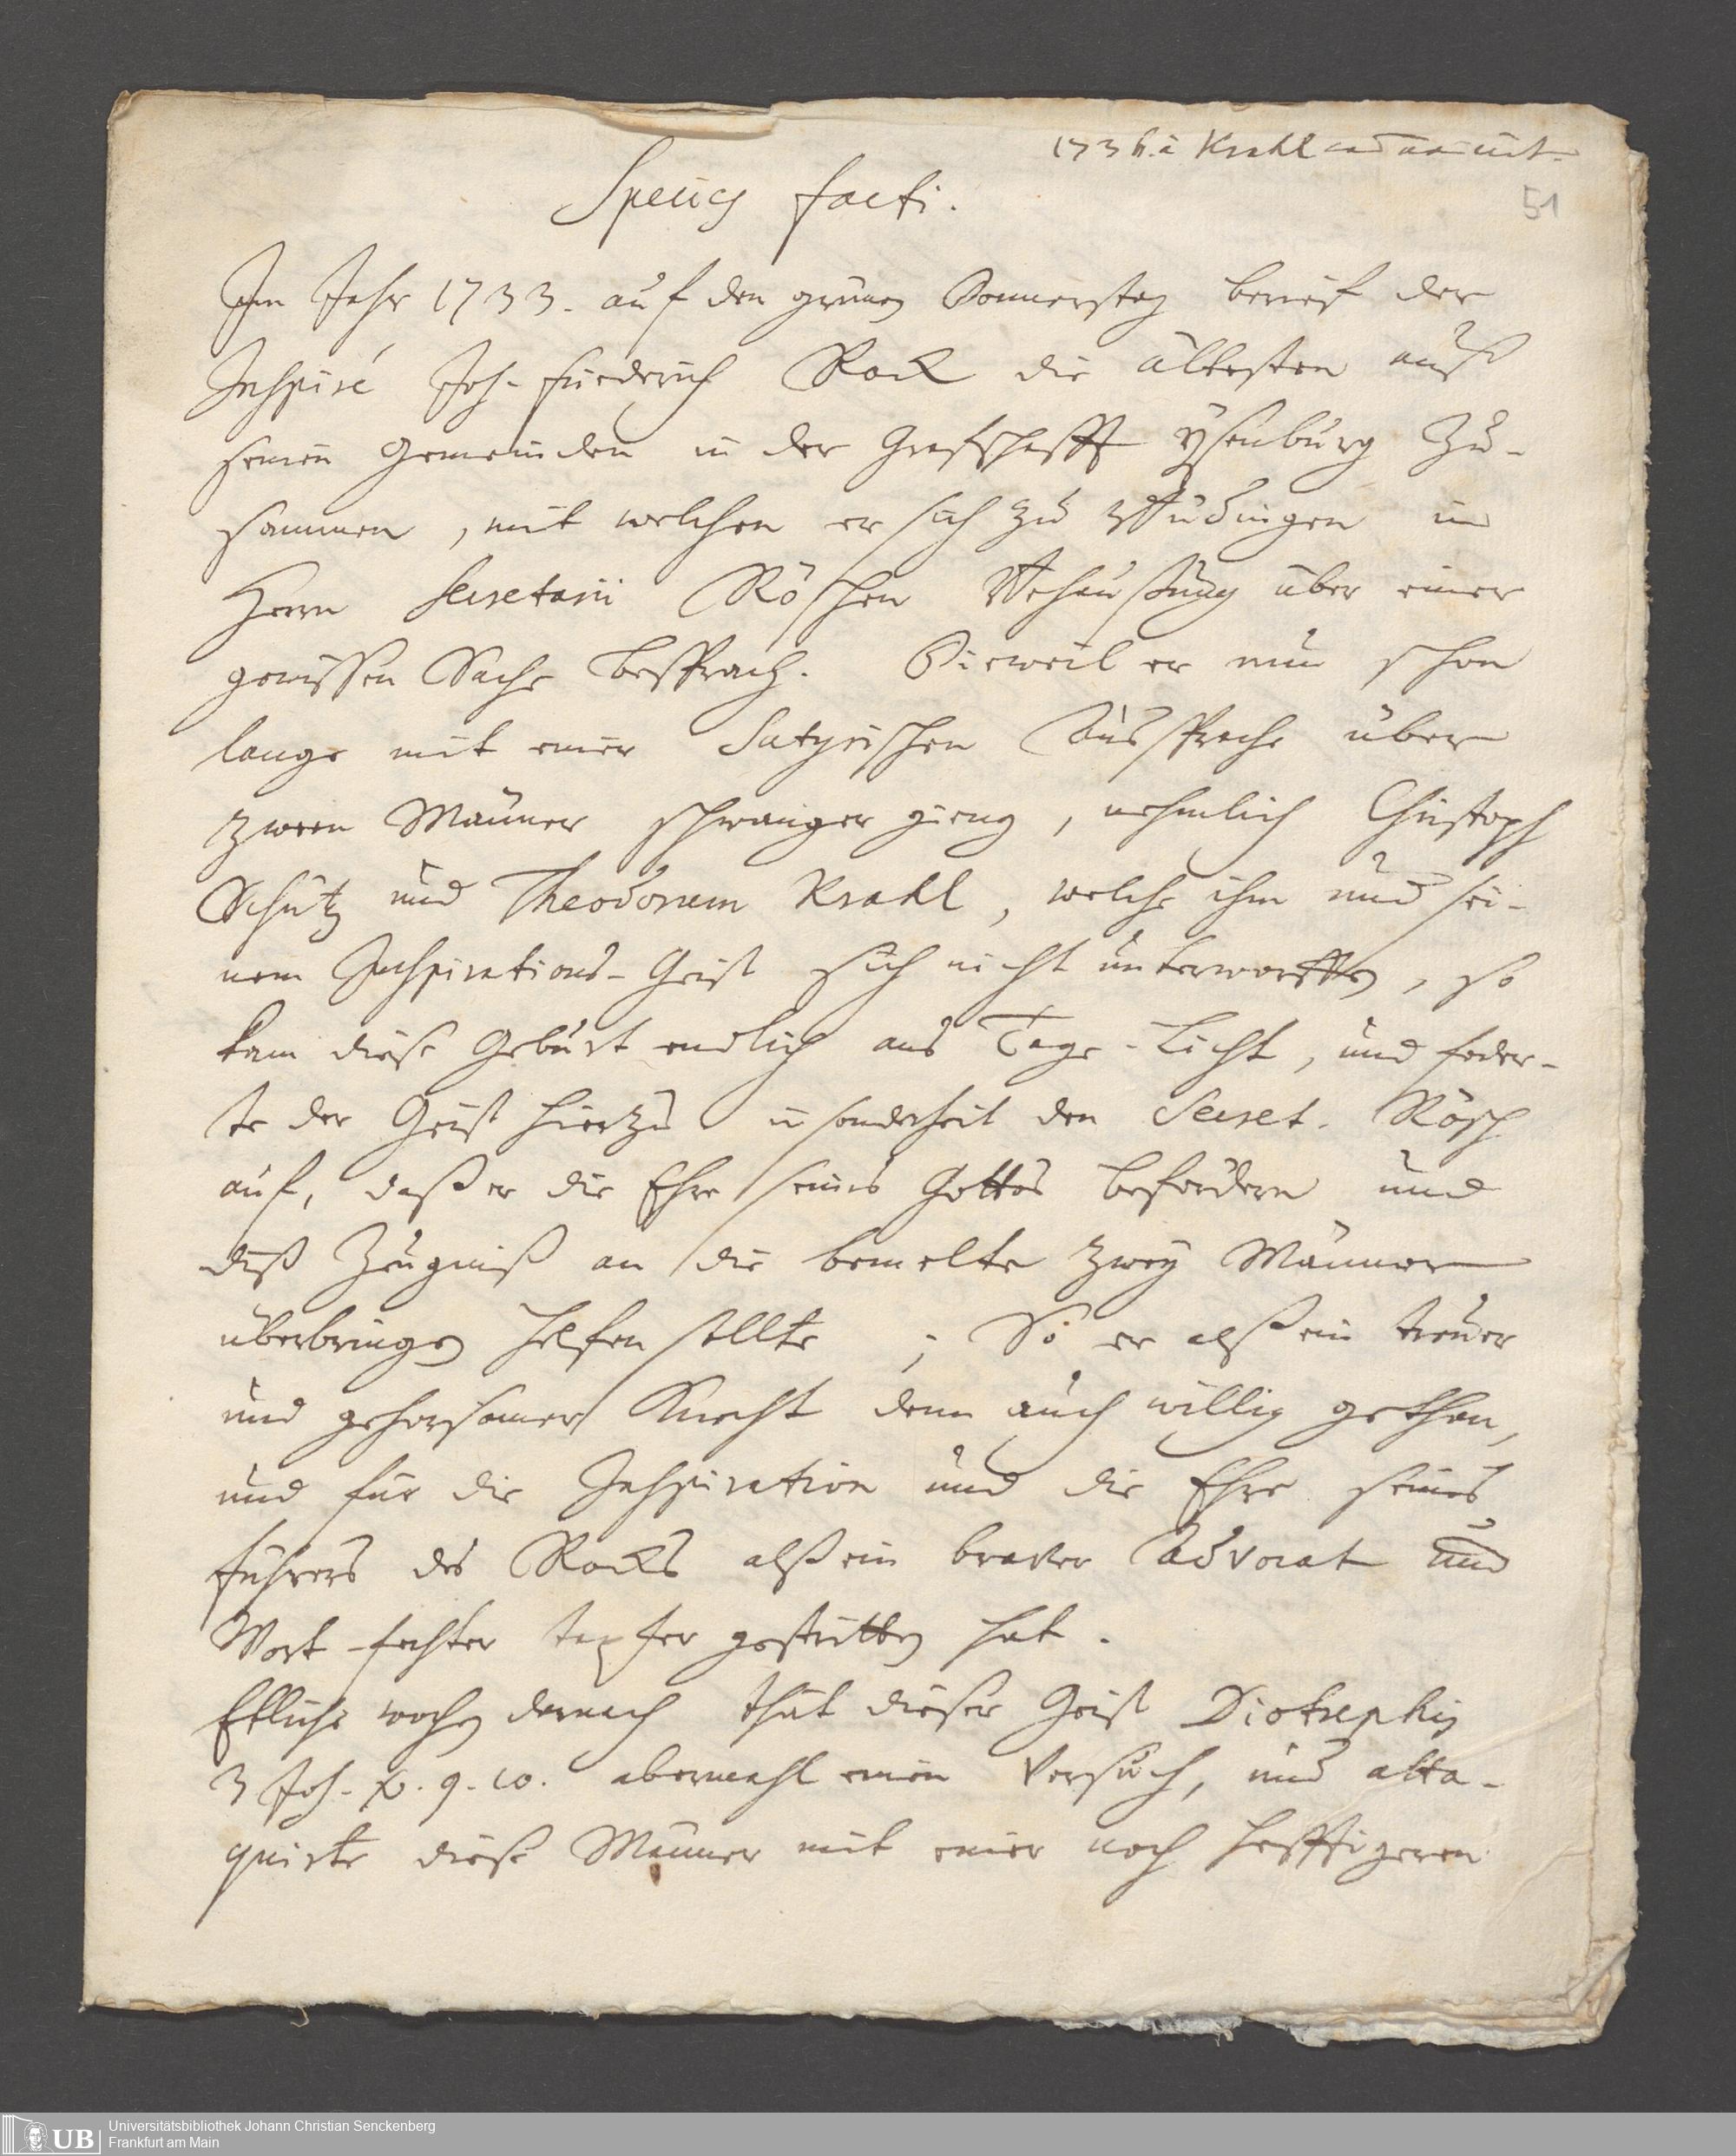 Krahl
51
Species facti.
Im Jahr 1733. auf den grünen Donnerstag berief der
Inspiré Joh. Friederich Rock die ältesten auß
seinen Gemeinden in der Grafschafft Ysenburg zu-
sammen, mit welchen er sich zu Büdingen in
Herrn Secretarii Röschen Behausung über einer
gewissen Sache besprach. Dieweil er nun schon
lange mit einer Satyrischen Aussprache über
zween Männer schwanger gieng, nehmlich Christoph
Schütz und Theodorum Krahl, welche ihm und sei-
nem Inspirations-Geist sich nicht unterworffen, so
kam diese Geburt endlich ans Tage-Licht, und foder-
te der Geist hierzu insonderheit den Secret. Rösch
auf, daß er die Ehre seines Gottes befördern und
diß Zeugniß an die bemelte zwey Männer
überbringen helfen sollte ; So er alß ein treuer
und gehorsamer Knecht denn auch willig gethan,
und für die Inspiration und die Ehre seines
Führers des Rocks alß ein braver Advocat und
Wort-fechter tapfer gestritten hat.
Etliche wochen darnach that dieser Geist Diotrephis
3 Joh. v. 9. 10. abermahl einen Versuch, und atta-
quirte diese Männer mit einer noch hefftigeren
UB
Universitätsbibliothek Johann Christian Senckenberg
Frankfurt am Main